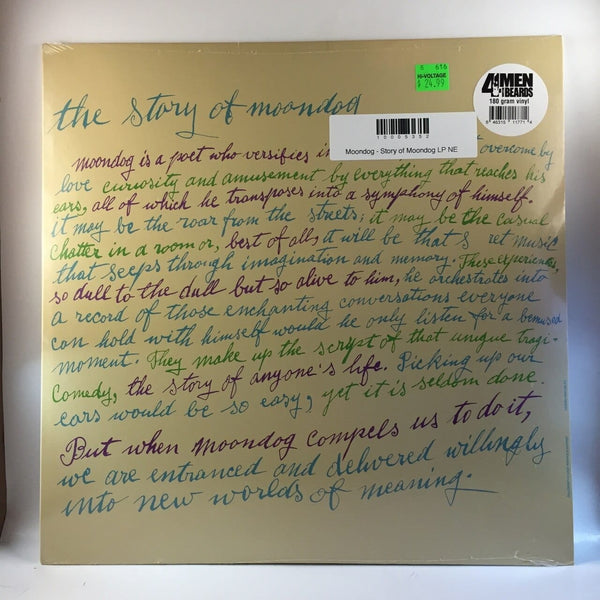 the story of moondog
8 616
HI-VOLTAGE
$ 24.99
4 MEN
BEARDS
180 gram vinyl
8 46315 11771 4
10005352
Moondog - Story of Moondog LP NE
moondog is a poet who versifies in overcome by
love curiosity and amusement by everything that reaches his
ears, all of which he transposes into a symphony of himself.
it may be the roar from the streets; it may be the casual
chatter in a room or, best of all, it will be that s ret music
that seeps through imagination and memory. These experiences,
so dull to the dull but so alive to him, he orchestrates into
a record of those enchanting conversations everyone
can hold with himself would he only listen for a bemused
moment. They make up the script of that unique tragi-
comedy, the story of anyone's life. Picking up our
ears would be so easy, yet it is seldom done.
But when moondog compels us to do it,
we are entranced and delivered willingly
into new worlds of meaning.